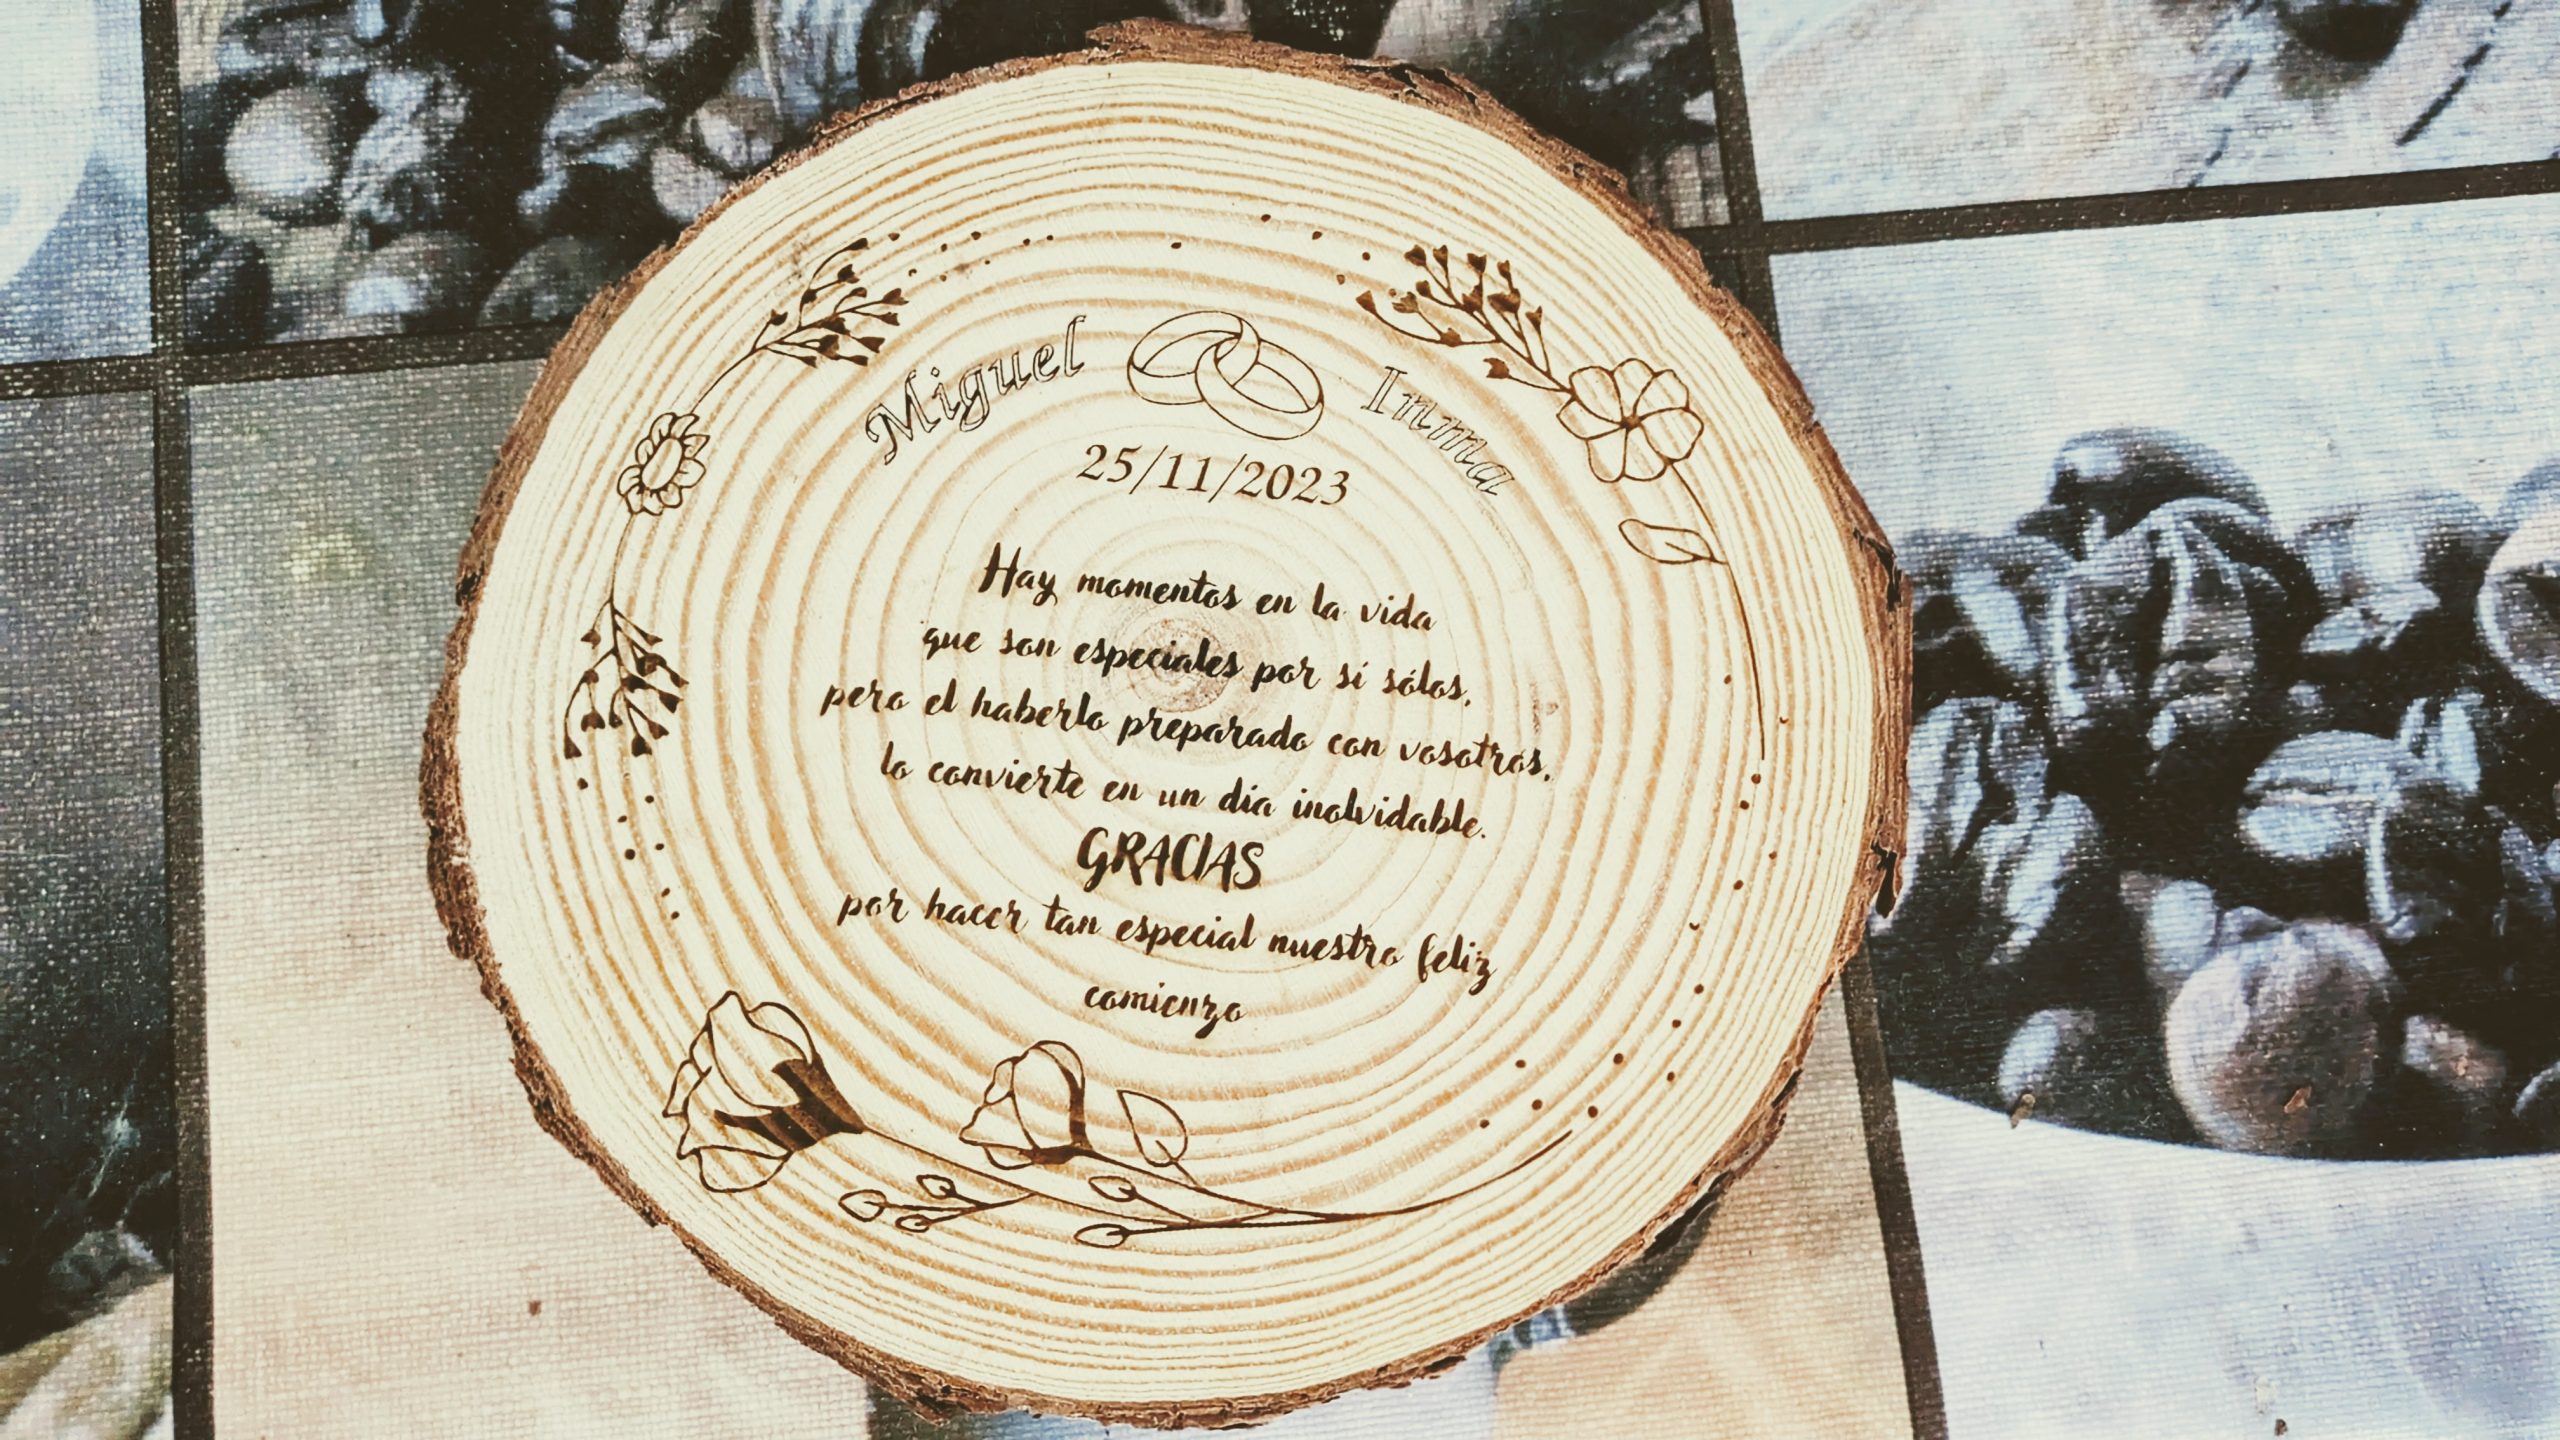 Miguel Inma
25/11/2023
Hay momentos en la vida
que son especiales por sí sólos,
pero el haberlo preparado con vosotros,
lo convierte en un día inolvidable.
GRACIAS
por hacer tan especial nuestro feliz
comienzo